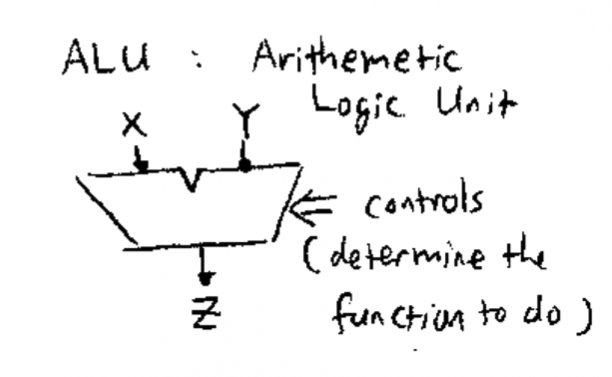 ALU : Arithemetic
Logic Unit
X Y
controls
(determine the
function to do)
Z